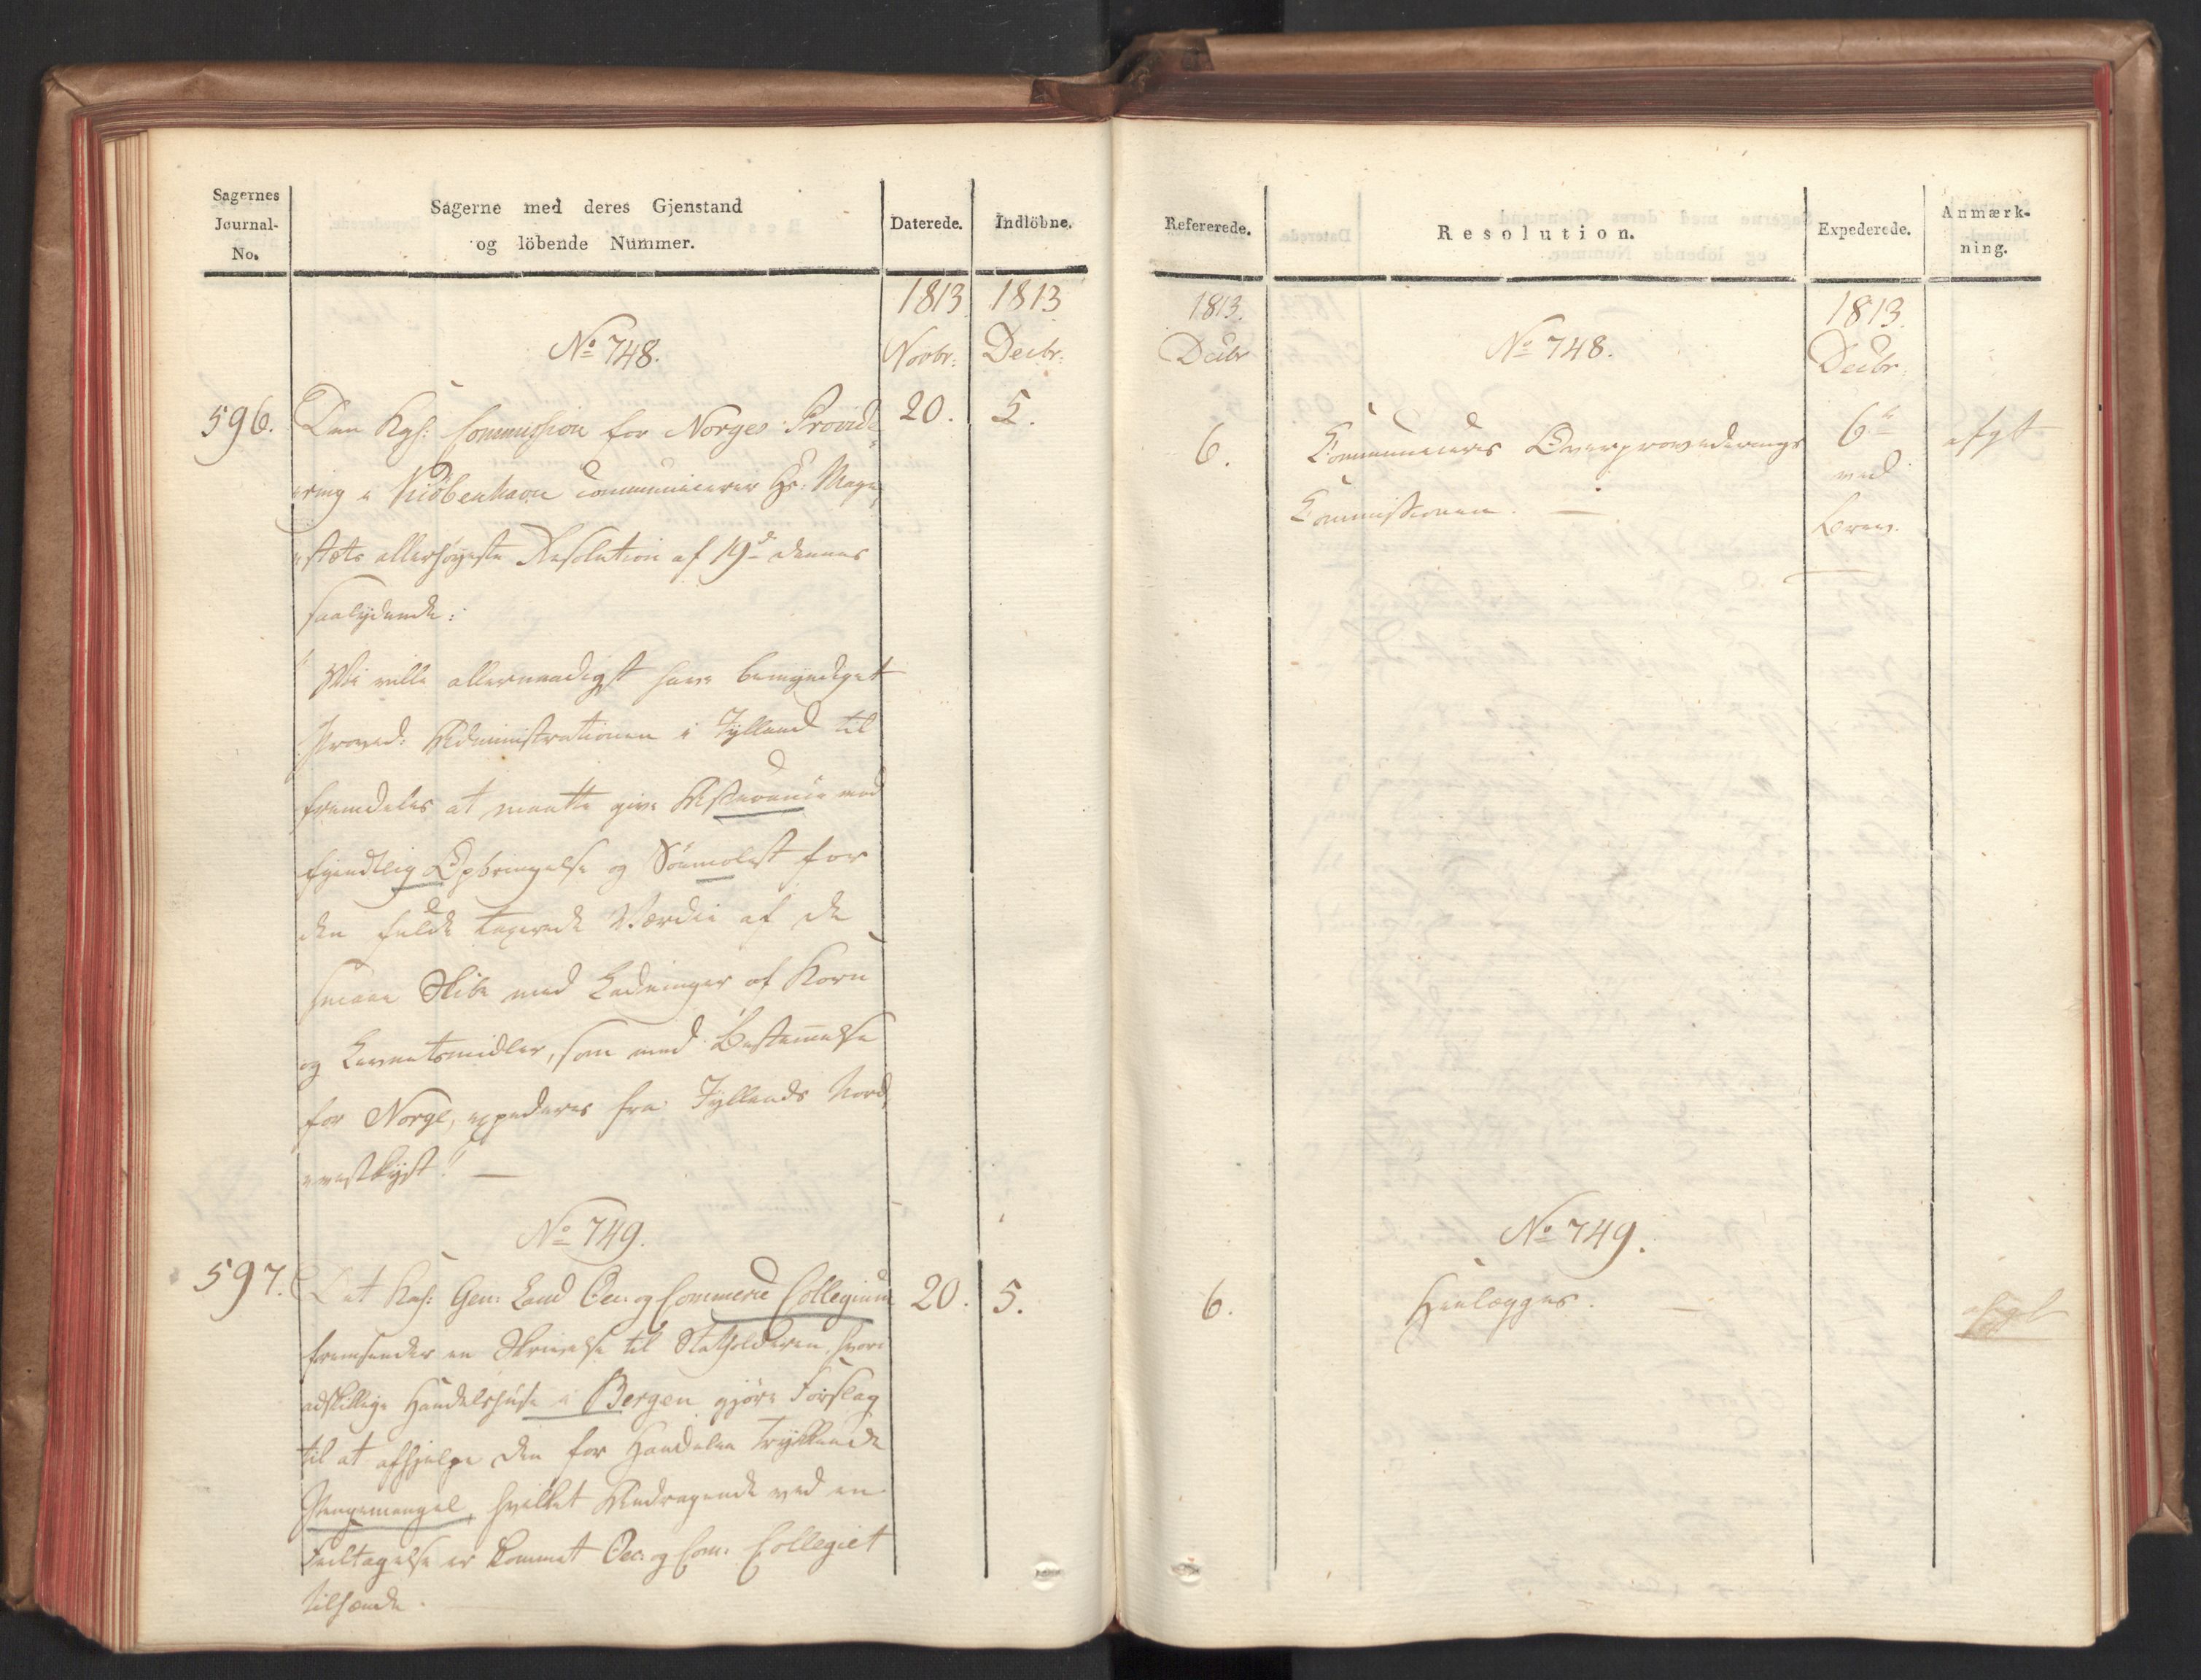 Sagernes
Journal-
No.
Sagerne med deres Gjenstand
og löbende Nummer.
Daterede.
Indlöbne.
1813
1813
Novbr:
Decbr:
No 748.
596.
Den Kgl: Commission for Norges Provide
20.
5.
ring i Kiöbenhavn communicerer Hs: Maje
stæts allerhöyeste Resolution af 19d dennes
saalydende:
"Vi ville allernaadigst have bemyndiget
Provid: Administrationen i Jylland til
fremdeles at maatte give Assurance mod
fjendtlig Opbringelse og Sömolest for
den fulde taxerede Værdie af de
smaae Skibe med Ladninger af Korn
og Levnetsmidler, som med Bestemmelse
for Norge, expederes fra Jyllands Nord
vestkyst" —
No 749.
597.
Det Kgl: Gen: Land Oec: og Commerce Collegium
20.
5.
fremsender en Skrivelse til Statholderen, hvori
adskillige Handelshuse i Bergen gjöre Forslag
til at afhjelpe den for Handelen trykkende
Pengemangel, hvilket Andragende ved en
Feiltagelse er kommet Oec: og Com: Collegiet
tilhænde.
Refererede.
Resolution.
Expederede.
Anmærk-
ning.
1813.
1813.
Decbr
No 748.
Decbr.
6.
Communiceres Overproviderings
6te
afgt
Commissionen. —
ved
Brev.
No 749.
6.
Henlægges. —